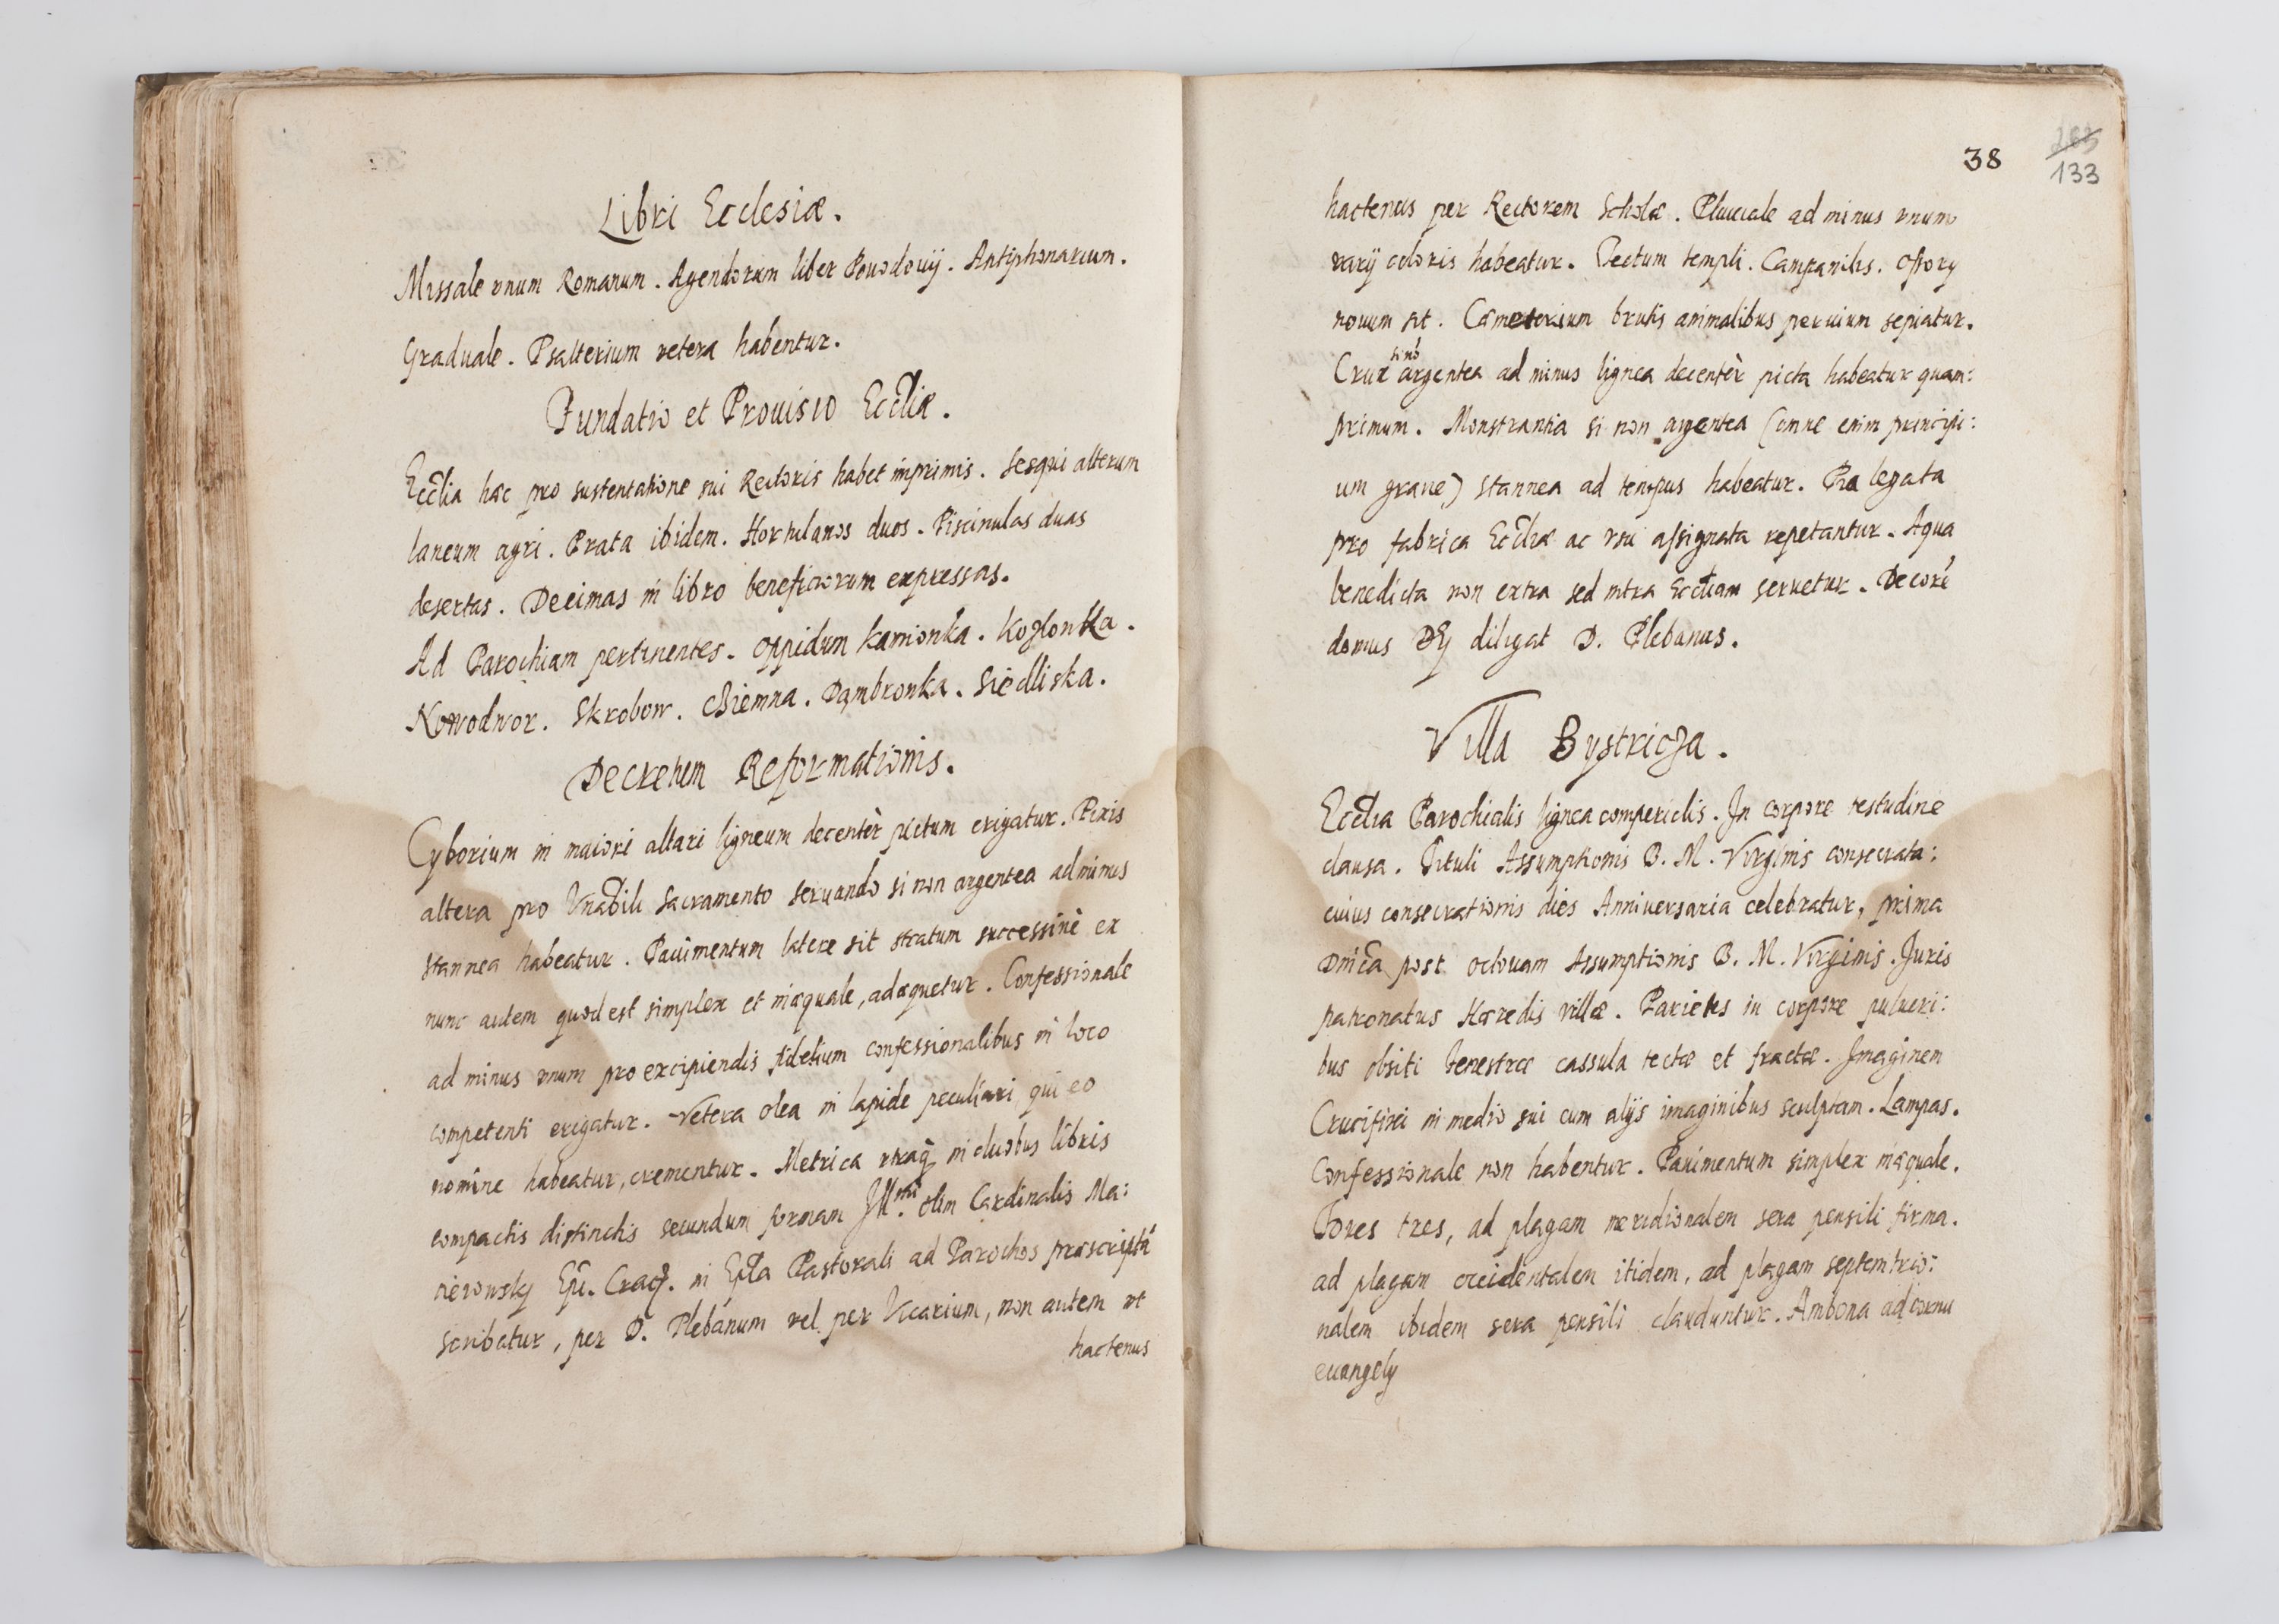 Libri Ecclesiæ.
Missale vnum Romanum. Agendorum liber Powodowij. Antiphonarium.
Graduale. Psalterium vetera habentur.
Fundatio et Prouisio Eccliæ.
Ecclia hæc pro sustentatione sui Rectoris habet inprimis. Sesqui alterum
laneum agri. Prata ibidem. Hortulanos duos. Piscinulas duas
desertas. Decimas in libro beneficiorum expressas.
Ad Parochiam pertinentes. Oppidum Kamionka. Kozlonka.
Nowodwor. Skrobow. Ciemna. Dąmbronka. Siedliska.
Decretum Reformationis.
Cyborium in maiori altari ligneum decentèr pictum erigatur. Pixis
altera pro Vnãbili sacramento seruando si non argentea ad minus
stannea habeatur. Pauimentum latere sit stratum successiuè ex
nunc autem quod est simplex et inæquale, adæquetur. Confessionale
ad minus vnum pro excipiendis fidelium confessionalibus in loco
competenti erigatur. Vetera olea in lapide peculiari qui eo
nomine habeatur, crementur. Metrica vtraq; in duobus libris
compactis distinctis secundum formam Ill.mi olim Cardinalis Ma:
cieiowsky Epi. Crac. in Epla Pastorali ad Parochos præscriptã
scribatur, per D. Plebanum vel per Vicarium, non autem vt
hactenus
38
133
hactenus per Rectorem Scholæ. Pluuiale ad minus vnum
varij coloris habeatur. Tectum templi. Campanilis.
nouum sit. Cæmeterium brutis animalibus peruium sepiatur.
sinõ
Crux argentea ad minus lignea decentèr picta habeatur quam:
primum. Monstrantia si non argentea (omne enim principi:
um graue) stannea ad tempus habeatur. Re legata
pro fabrica Eccliæ ac vsui assignata repetantur. Aqua
benedicta non extra sed intra Eccliam seruetur. Decorẽ
domus Dei diligat D. Plebanus.
Villa Bystricza.
Ecclia Parochialis lignea comperielis. In corpore testudine
clausa. Tituli Assumptionis B. M. Virginis consecrata:
cuius consecrationis dies Anniversaria celebratur, prima
Dnica post octauam Assumptionis B. M. Virginis. Juris
patronatus Hæredis villæ. Parietes in corpore pulueri:
bus obsiti Fenestræ cassula tectæ et fractæ. Imaginem
Crucifixi in medio sui cum alijs imaginibus sculptam. Lampas.
Confessionale non habentur. Pauimentum simplex inæquale.
Fores tres, ad plagam meridionalem sera pensili firma.
ad plagam occidentalem itidem, ad plagam septemtrio:
nalem ibidem sera pensili clauduntur. Ambona ad cornu
euangely